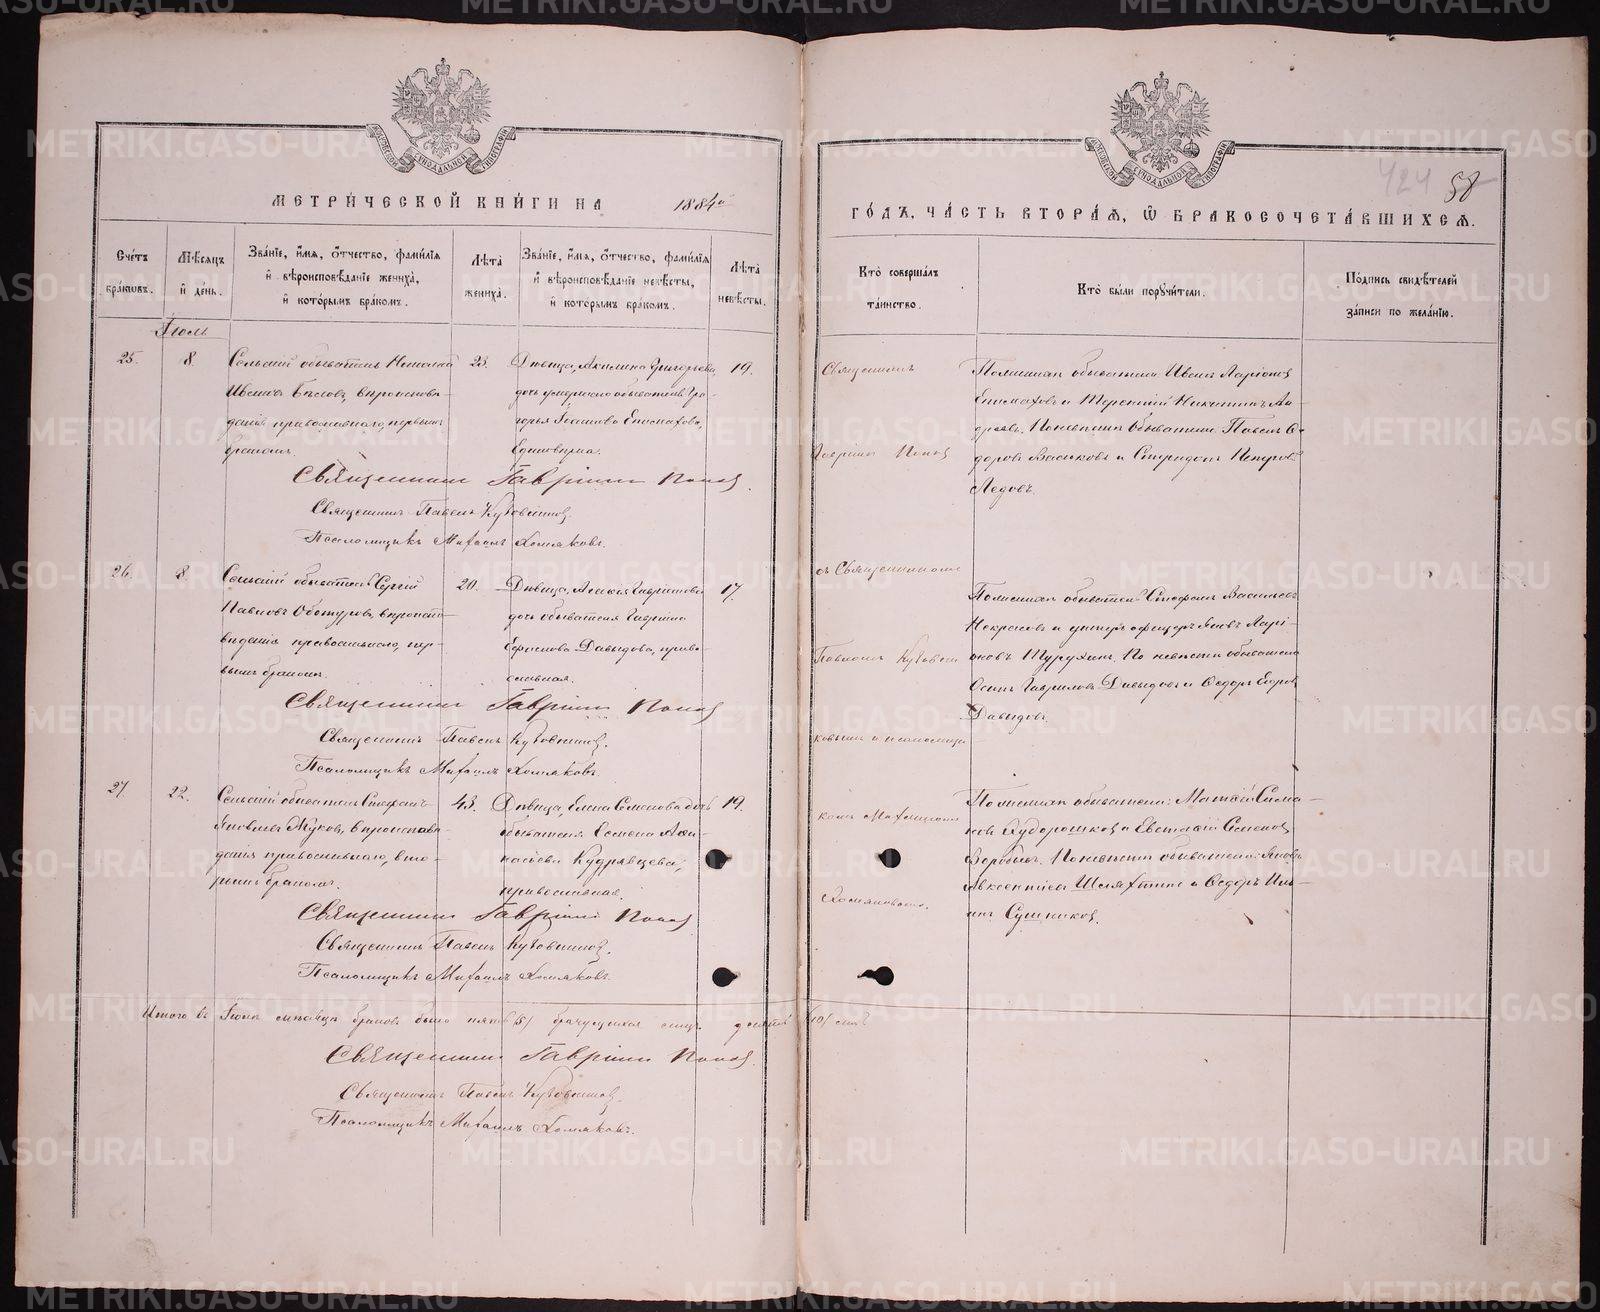 МЕТРИЧЕСКОЙ КНИГИ НА 1884й
ГОДЪ, ЧАСТЬ ВТОРАЯ, Ѿ БРАКОСОЧЕТАВШИХСЯ.
424 58
Счетъ браковъ.
Мѣсяцъ и день.
Званіе, имя, отчество, фамилія и вѣроисповѣданіе жениха, и которымъ бракомъ.
Лѣта жениха.
Званіе, имя, отчество, фамилія и вѣроисповѣданіе невѣсты, и которымъ бракомъ.
Лѣта невѣсты.
Кто совершалъ таинство.
Кто были поручители.
Подпись свидѣтелей записи по желанію.
Іюль
25. 8.
Сельскій обыватель Николай
Ивановъ Бѣловъ, вѣроиспове-
данія православнаго, первымъ
бракомъ.
23.
Дѣвица, Акилина Григорьева,
дочь умершаго обывателя Гри-
горья Епимахова,
Единовѣрка.
19.
Священникъ
Гавріилъ Поповъ
Поженихѣ обыватели: Иванъ Ларіоновъ
Епимаховъ и Терентій Никитинъ Ан-
дреевъ. Поневѣстѣ обыватели: Павелъ Ѳе-
доровъ Васильковъ и Спиридонъ Петровъ
Ледовъ.
Священникъ Гавріилъ Поповъ.
Священникъ Павелъ Кутовщиковъ.
Псаломщикъ Михаилъ Хомяковъ.
26. 8.
Сельскій обыватель Сергій
Павловъ Обатуровъ, вѣроиспо-
вѣданія православнаго, пер-
вымъ бракомъ.
20.
Дѣвица, Гаврилова
дочь обывателя Гавріила
Ефимова Давыдова, право-
славная.
17.
съ Священникомъ
Павломъ Кутовщи-
ковымъ и псаломщи-
комъ Михаиломъ
Хомяковымъ.
Поженихѣ обыватель Стефанъ Васильевъ
Некрасовъ и унтеръ офицеръ Яковъ Ларі-
оновъ Шурухинъ. По невѣстѣ обыватели
Осипъ Гавриловъ Давыдовъ и Ѳедоръ Егоровъ
Давыдовъ.
Священникъ Гавріилъ Поповъ
Священникъ Павелъ Кутовщиковъ.
Псаломщикъ Михаилъ Хомяковъ.
27. 22.
Сельскій обыватель Стефанъ
Яковлевъ Жуковъ, вѣроисповѣ-
данія православнаго, вто-
рымъ бракомъ.
43.
Дѣвица, Елена Семенова дочь
обывателя Семена Аѳа-
насьева Кудрявцева,
православная.
19.
Поженихѣ обыватели: Матѳей Сима-
новъ Худорошковъ и Евстафій Семеновъ
Воробьевъ. Поневѣстѣ обыватели: Яковъ
Авксентіевъ Шеляхтинъ и Ѳедоръ Иль-
инъ Сушниковъ.
Священникъ Гавріилъ Поповъ
Священникъ Павелъ Кутовщиковъ.
Псаломщикъ Михаилъ Хомяковъ.
Итого въ Іюлѣ мѣсяцѣ браковъ было пять (5) брачущихся лицъ десять (10) лицъ
Священникъ Гавріилъ Поповъ
Священникъ Павелъ Кутовщиковъ.
Псаломщикъ Михаилъ Хомяковъ.
METRIKI.GASO-URAL.RU